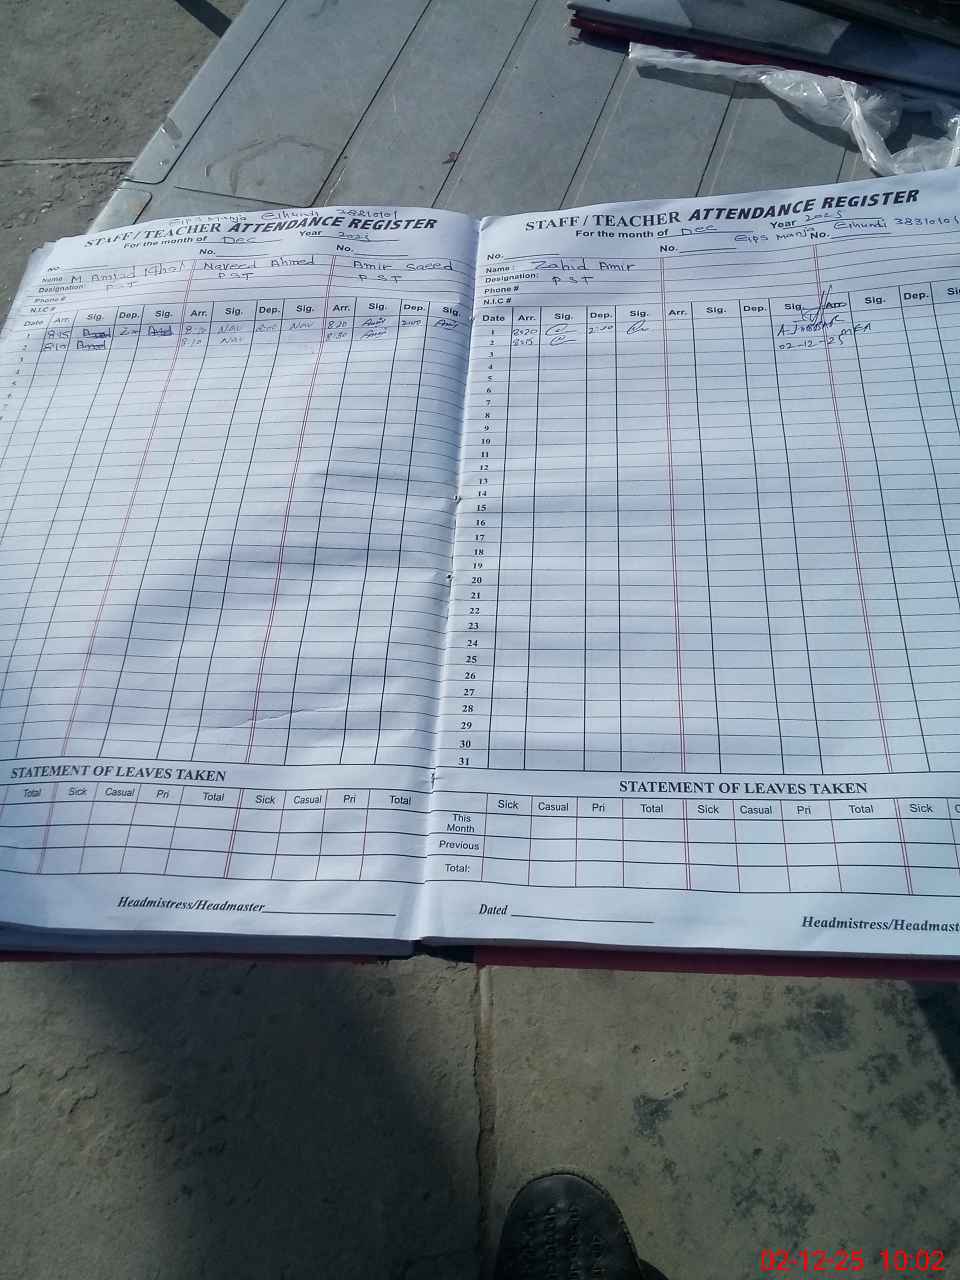 GIPS Manja Elhundi 38310101
STAFF / TEACHER ATTENDANCE REGISTER
For the month of Dec Year 2025
No. No.
No
Name: M Amjad Iqbal Naveed Ahmed Amir Saeed
Designation: PST PST PST
Phone #
N.I.C #
Date Arr. Sig. Dep. Sig. Arr. Sig. Dep. Sig. Arr. Sig. Dep. Sig.
1 8:15 Amjad 2:00 Amjad 8:20 Nav 2:00 Nav 8:20 Amir 2:00 Amir
2 8:10 Amjad 8:10 Nav 8:30 Amir
3
4
5
6
7
STATEMENT OF LEAVES TAKEN
Total Sick Casual Pri Total Sick Casual Pri Total
Headmistress/Headmaster
STAFF / TEACHER ATTENDANCE REGISTER
For the month of Dec Year 2025
GIPS Manja Elhundi 38310101
No. No. No.
Name: Zahid Amir
Designation: PST
Phone #
N.I.C #
Date Arr. Sig. Dep. Sig. Arr. Sig. Dep. Sig. Arr. Sig. Dep. Si
1 8:20 2:00
2 8:15
MEA
02-12-25
3
4
5
6
7
8
9
10
11
12
13
14
15
16
17
18
19
20
21
22
23
24
25
26
27
28
29
30
31
STATEMENT OF LEAVES TAKEN
Sick Casual Pri Total Sick Casual Pri Total Sick C
This Month
Previous
Total:
Dated Headmistress/Headmast
02-12-25 10:02